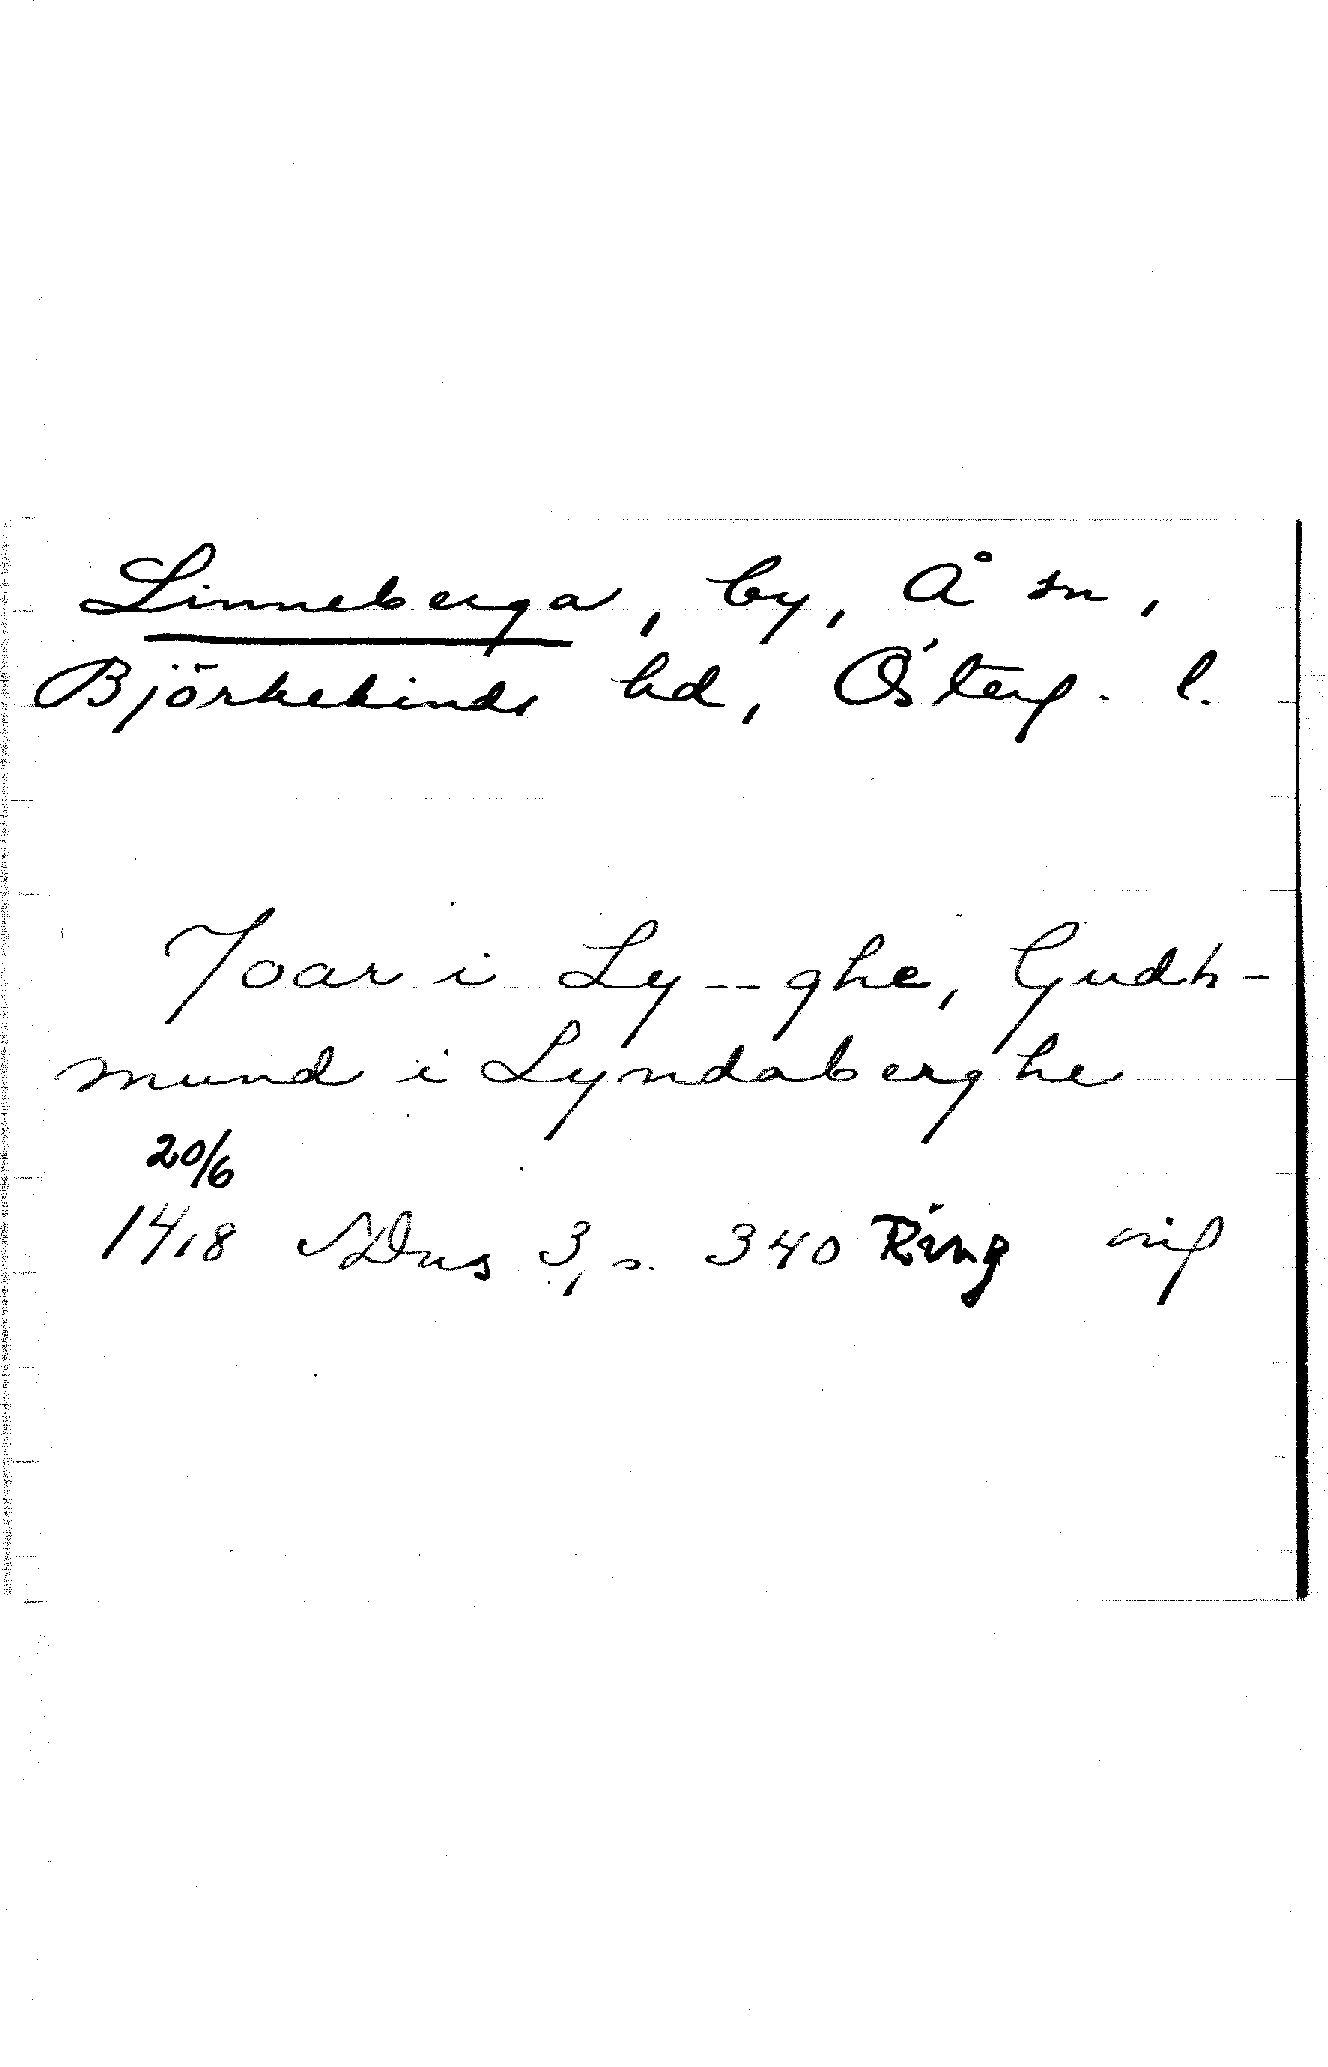 Linneberga, by, Å sn,
Björkekinds hd, Österg. l.
Joar i Ly--ghe, Gudh-
mund i Lyndaberghe
20/6
1418 NDns 3, s. 340 Ring orig